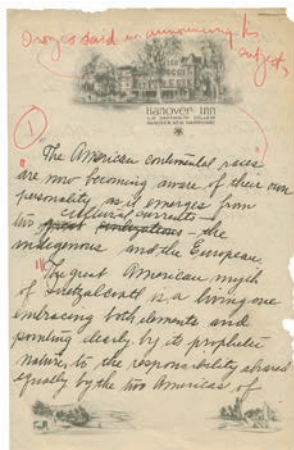 Orozco said in announcing his
subject,
Hanover Inn
AT DARTMOUTH COLLEGE
HANOVER, NEW HAMPSHIRE
1
"The American continental races
"are now becoming aware of their own
personality as it emerges from
cultural currents—
two great civilizations — the
indigenous and the European.
"The great American myth
of Quetzalcoatl is a living one
embracing both elements and
pointing clearly by its prophetic
nature, to the responsibility shared
equally by the two Americas of